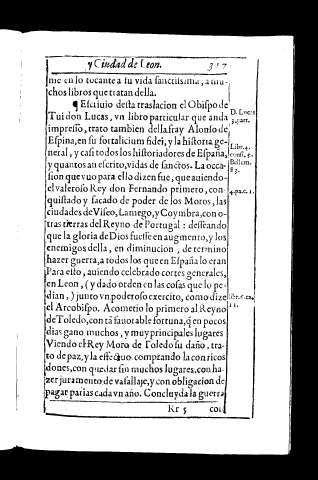 y Ciudad de Leon. 317
me en lo tocante a su vida sanctissima, a mu-
chos libros que tratan della.
¶ Escriuio desta traslacion el Obispo de
Tui don Lucas, vn libro particular que anda
impresso, trato tambien della fray Alonso de
Espina, en su fortalicium fidei, y la historia ge-
neral, y casi todos los historiadores de España,
y quantos an escrito, vidas de sanctos. La occa-
sion que vuo para ello dizen fue, que auiendo-
el valeroso Rey don Fernando primero, con-
quistado y sacado de poder de los Moros, las
ciudades de Viseo, Lamego, y Coymbra, con o-
tras tierras del Reyno de Portugal: desseando
que la gloria de Dios fuesse en augmento, y los
enemigos della, en diminucion, de termino
hazer guerra, a todos los que en España lo eran
Para ello, auiendo celebrado cortes generales,
en Leon, (y dado orden en las cosas que lo pe-
dian, ) junto vn poderoso exercito, como dize
el Arcobispo. Acometio lo primero al Reyno
de Toledo, con tã fauorable fortuna, q̃ en pocos
dias gano muchos, y muy principales lugares
Viendo el Rey Moro de Toledo su daño, tra-
to de paz, y la effectuo. comprando la con ricos
dones, con quedar sin muchos lugares, con ha-
zer juramento de vasallaje, y con obligacion de
pagar parias cada vn año. Concluyda la guerra
Rr 5 con
D. Lucas
3. part.
Libr. 4.
consi. 5.
Bellum.
83.
4. pa. c. 1.
libr. 6. ca.